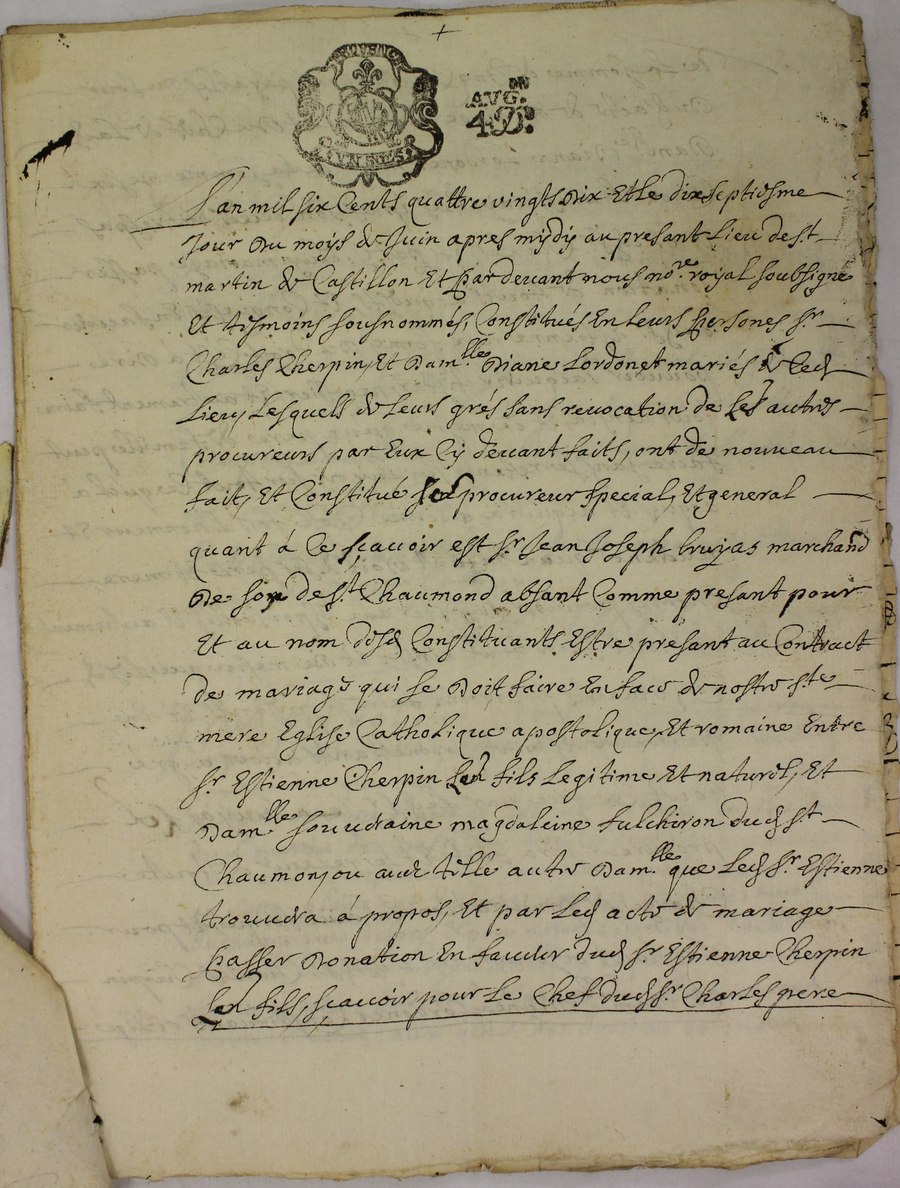 AVG.ON
4D.
L'an mil six Cents quattre vingts dix Et le dix septiesme
Jour du moys de Juin apres mydy au presant Lieu de st
martin de Castillon Et par devant nous no.re royal soubsigné
Et tesmoins sousnommés, Constitués En leurs persones sr
Charles Cherpin, Et dam.lle Diane Lordonet mariés de Ced
Lieu, Lesquels de leurs grés sans revocation de les autres
procureurs par Eux Cy devant faits, ont de nouveau
fait, Et Constitué procureur special, Et general
quant à Ce sçavoir est sr Jean Joseph brujas marchand
de st Chaumond absant Comme presant pour
Et au nom desd Constituants Estre présant au Contract
de mariage qui se doit faire En face de nostre ste
mere Eglise Catholique apostolique, Et romaine Entre
sr Estienne Cherpin Leur fils legitime Et naturel, Et
Dam.lle souvdraine magdaleine fulchiron dud st
Chaumon, ou avec telle autre Dam.lle que Led sr Estienne
trouvdra à propos, Et par Led acte de mariage
passer donation En faveur dud sr Estienne Cherpin
Leur fils, sçavoir pour le Chef dud sr Charles pere